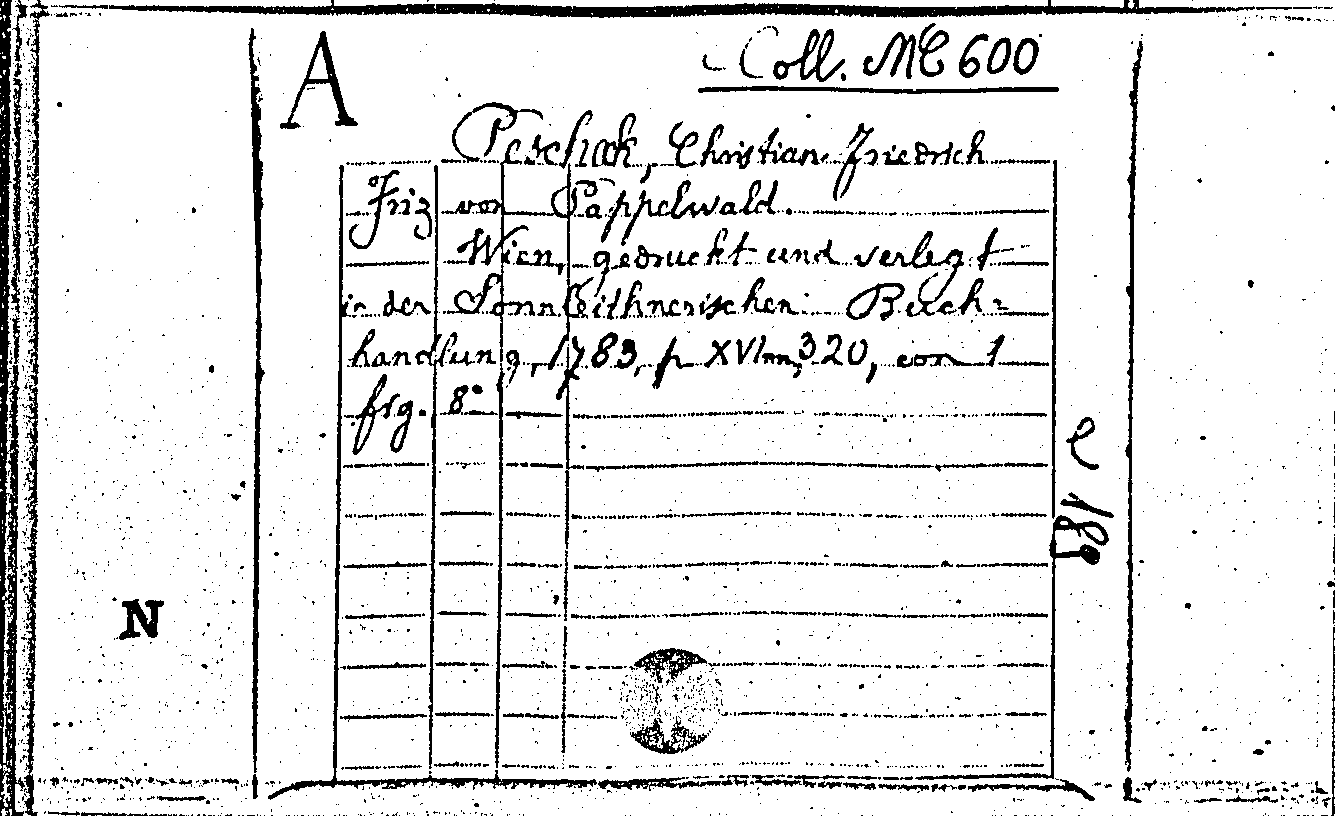 A
Coll. MC 600
Pescheck, Christian Friedrich
Friz von Pappelwald.
Wien, gedruckt und verlegt
in der Sonnleithnerischen Buch=
handlung, 1783, p XVInn, 320, con 1
frg. 8°
N